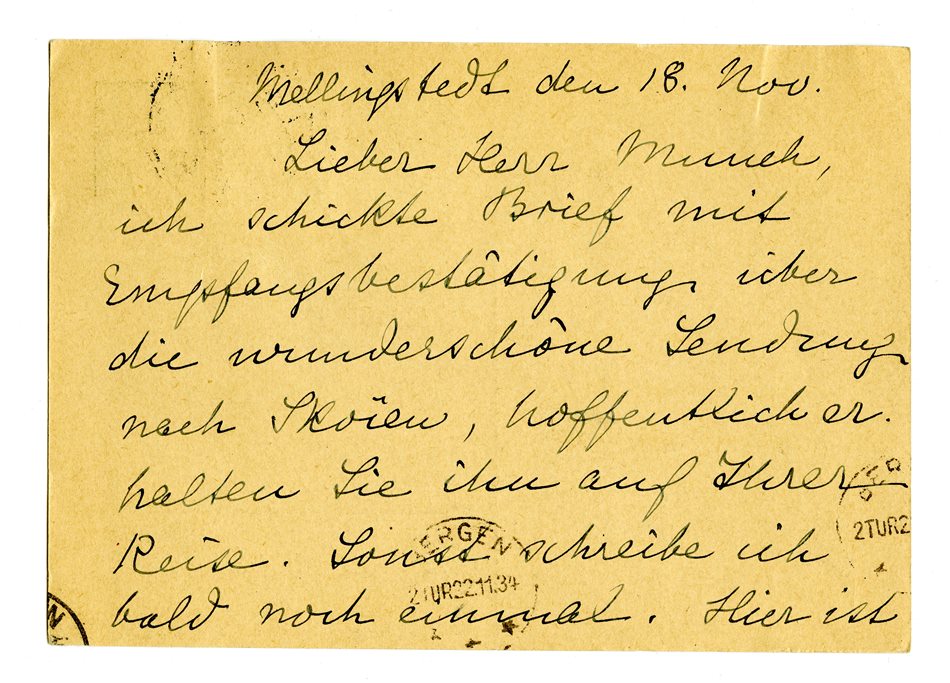 Mellingstedt den 18. Nov.
Lieber Herr Munch,
ich schickte Brief mit
Empfangsbestätigung über
die wunderschöne Sendung
nach Skoïen, hoffentlich er-
halten Sie ihn auf Ihrer
Reise. Sonst schreibe ich
bald noch einmal. Hier ist
BERGEN
2TUR22.11.34
2TUR2